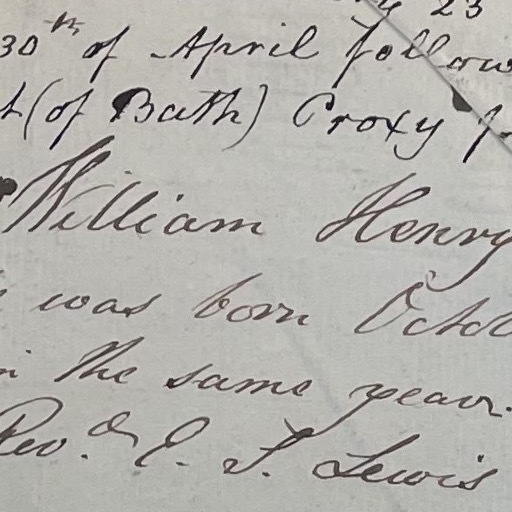 23
30th of April follow
(of Bath) Proxy f
William Henry
was born Octo
in the same year.
Rev. d E. T. Lewis